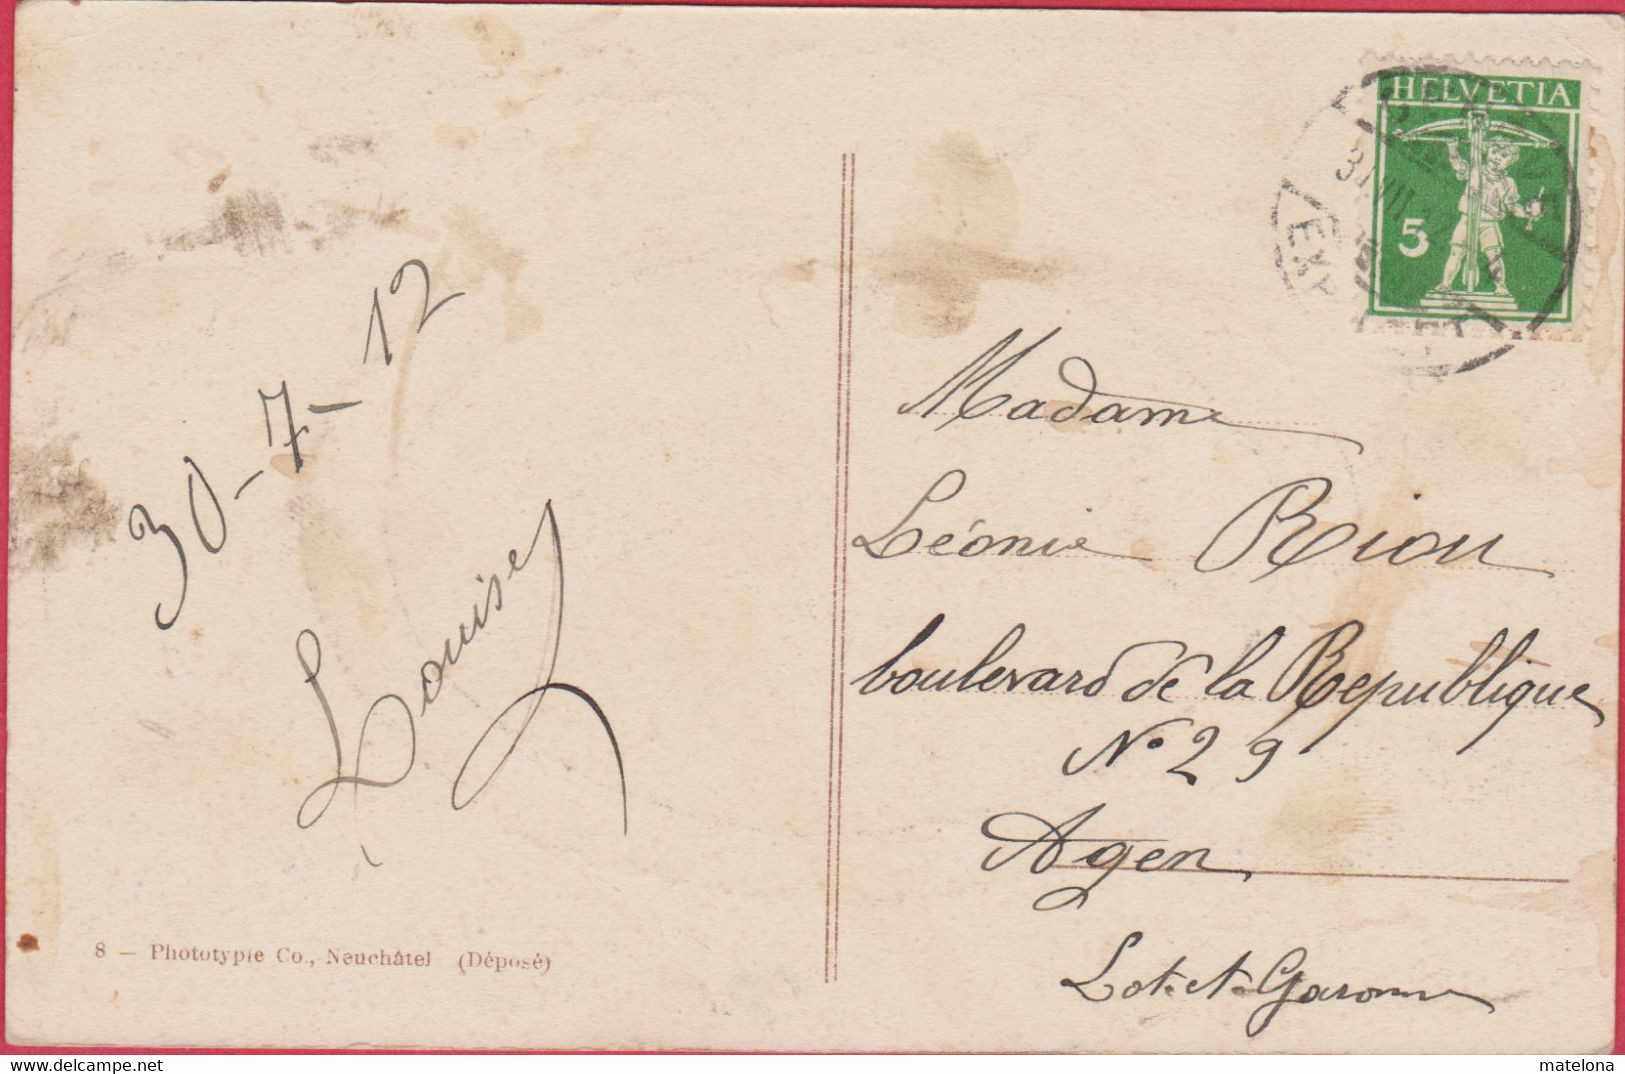 30-7-12
Louise
8 — Phototypie Co., Neuchâtel (Déposé)
HELVETIA
5
EXP
Madame
Léonie Riou
boulevard de la Republique
N° 29
Agen
Lot-et-Garonne
delcampe.net
matelona